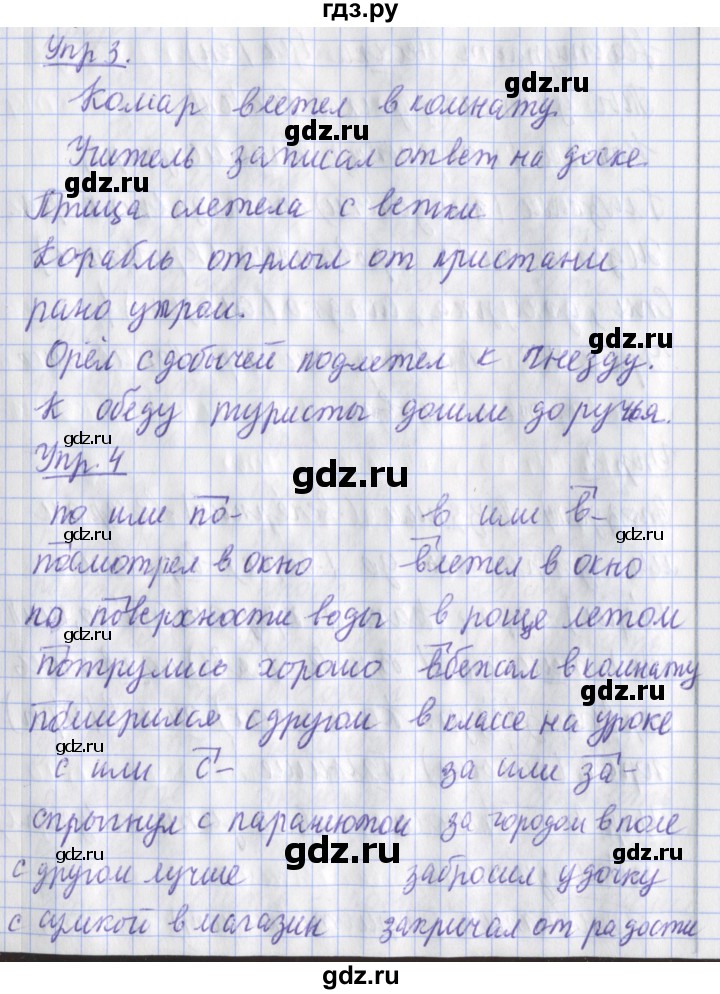 гдз.ру
Упр 3.
Комар влетел в комнату.
gdz.ru
gdz.ru
Учитель записал ответ на доске.
gdz.ru
Птица слетела с ветки
Корабль отплыл от пристани
рано утром.
gdz.ru
Орёл с добычей подлетел к гнезду.
К обеду туристы дошли до ручья.
gdz.ru
Упр. 4
gdz.ru
по или по-    в или в-
gdz.ru
gdz.ru
посмотрел в окно    влетел в окно
по поверхности воды    в роще летом
gdz.ru
потрудились хорошо    вбежал в комнату
gdz.ru
помирился с другом    в классе на уроке
gdz.ru
с или с-    за или за-
спрыгнул с парашютом    за городом в поле
gdz.ru
gdz.ru
gdz.ru
с другом лучше    забросил удочку
с сумкой в магазин    закричал от радости
gdz.ru
gdz.ru
гдз.ру